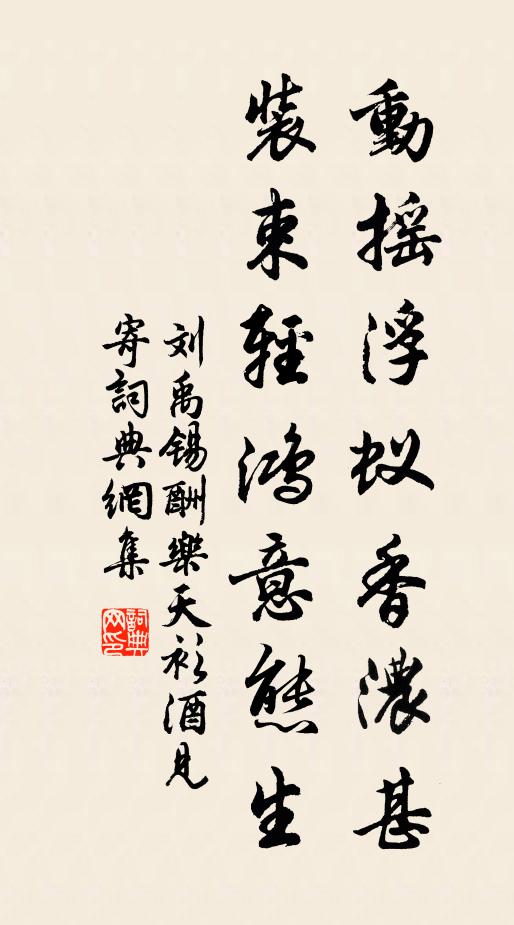 動搖浮蚁香濃甚
裝束輕鴻意態生
刘禹锡酬樂天衫酒見
寄詞典網集
詞典
网印